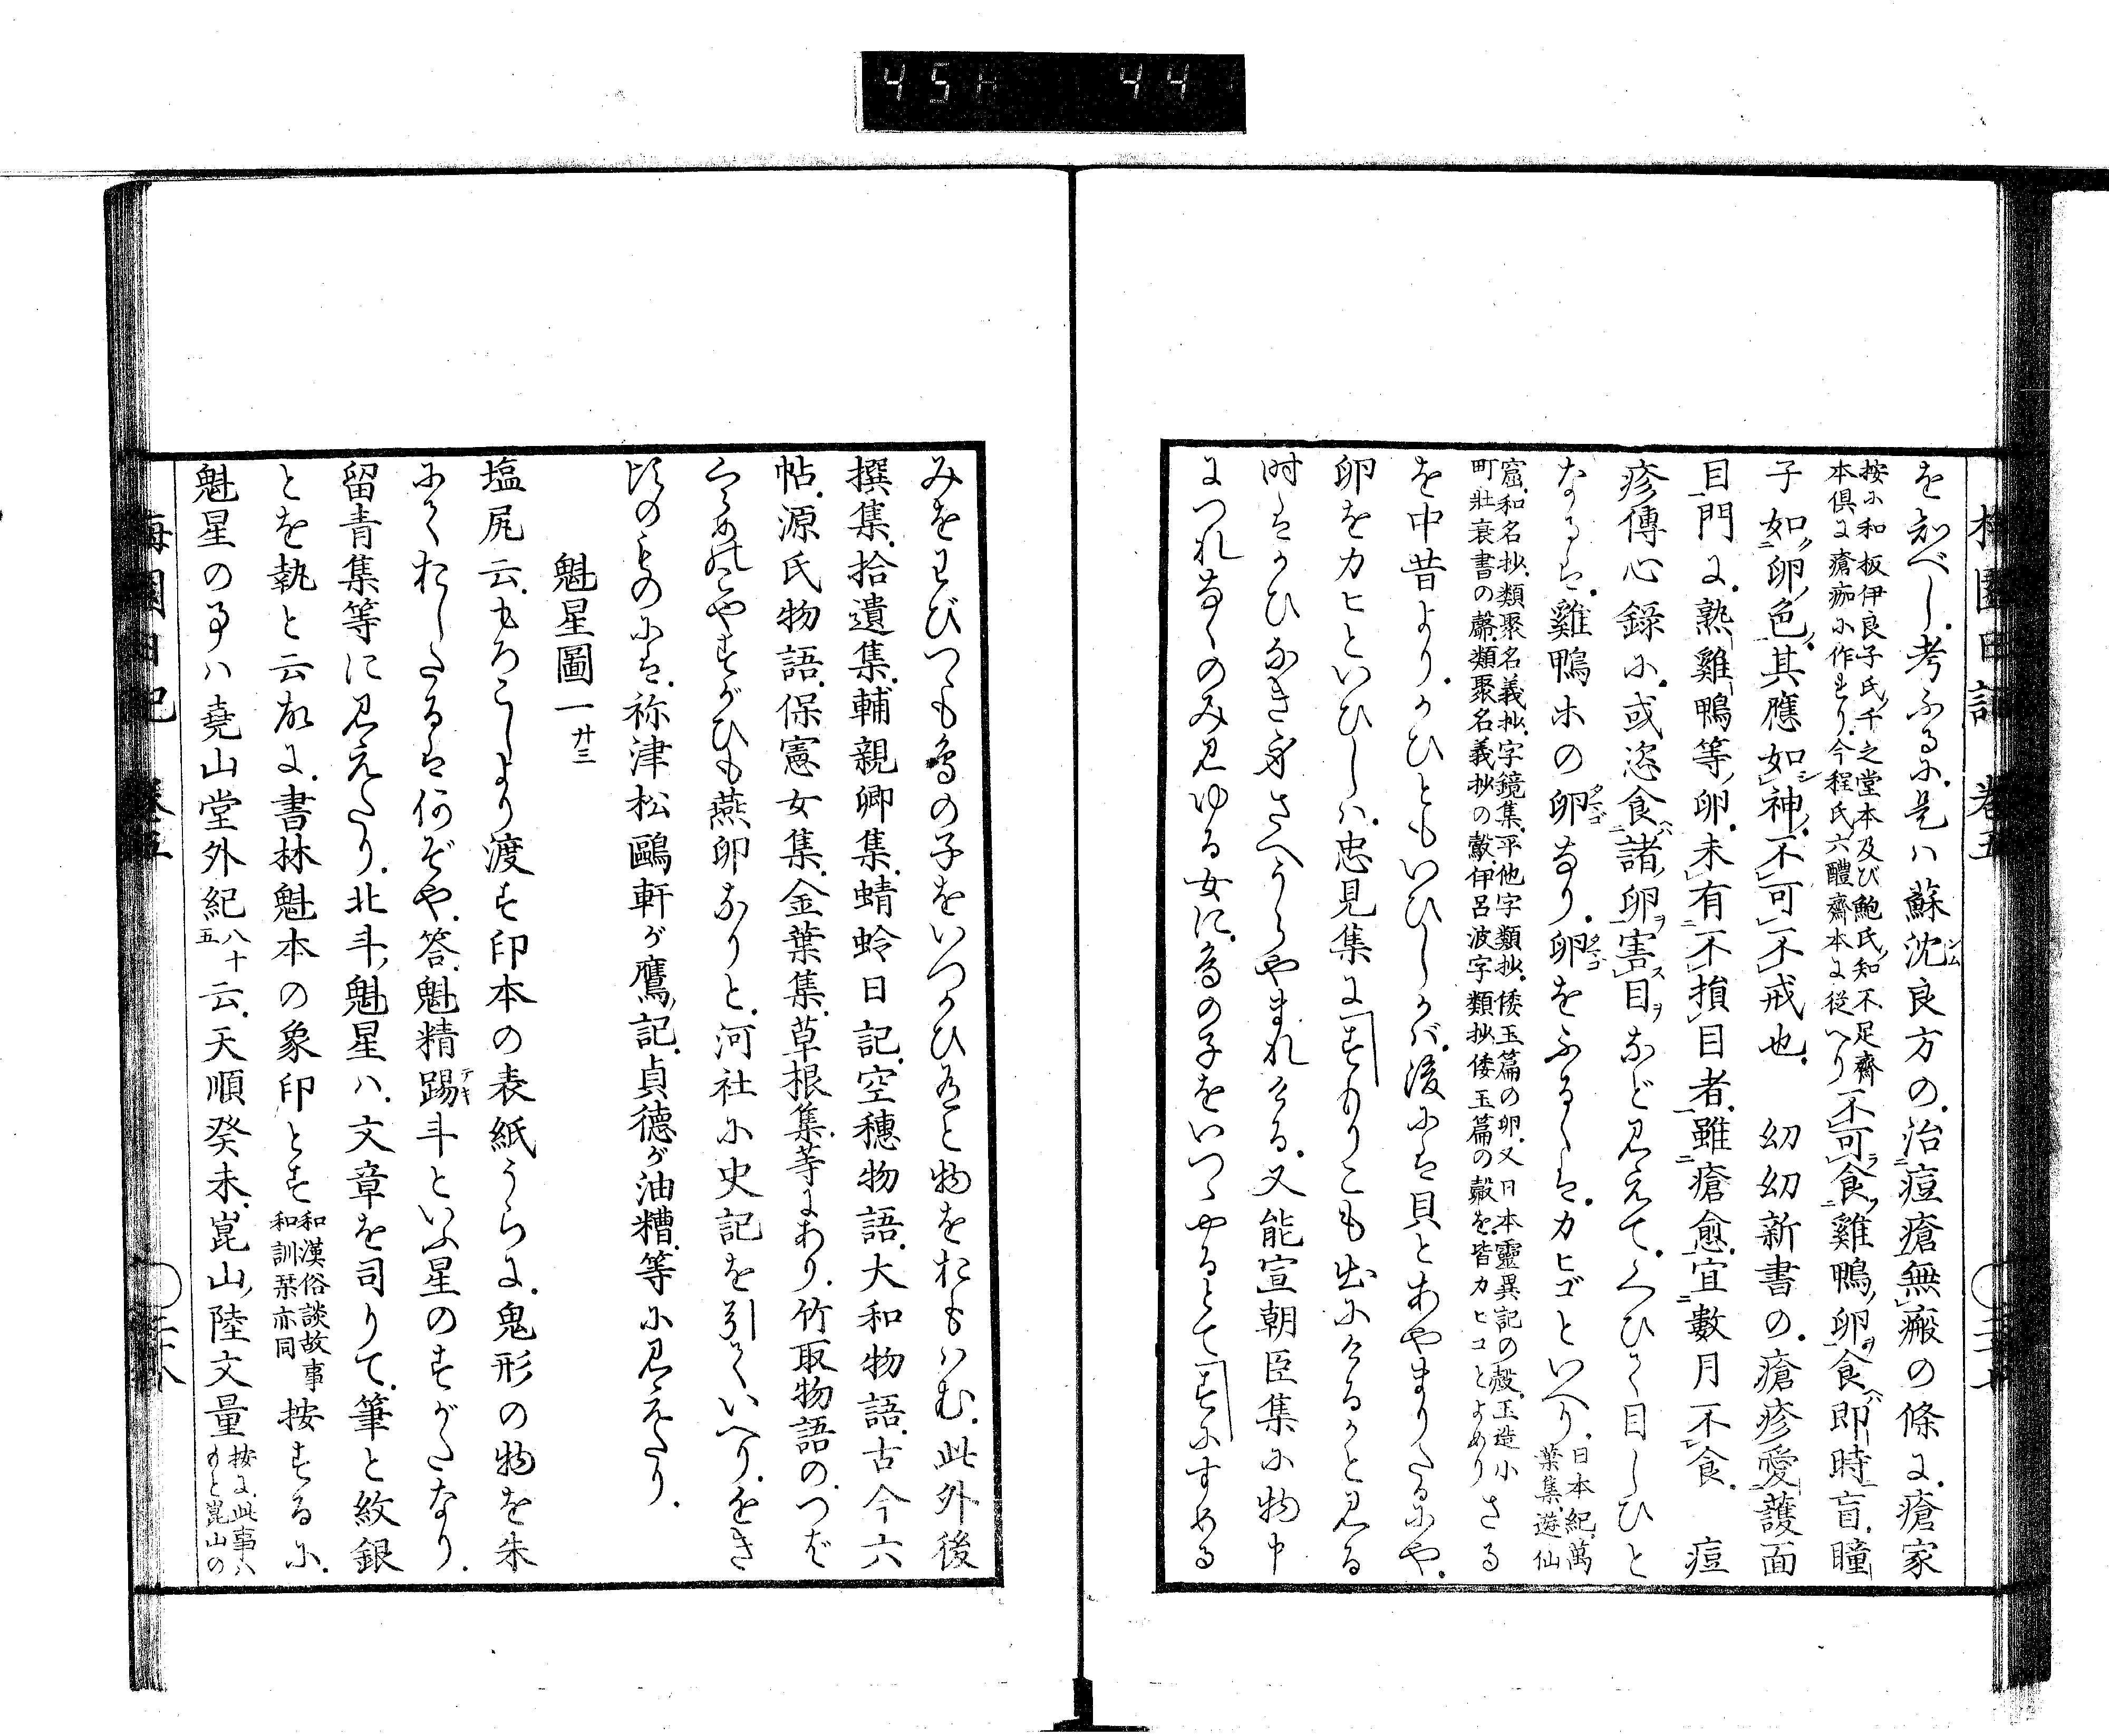 45h 44
梅園日記 卷五
を知べし.考ふるに.是ハ蘇沈良方の.治痘瘡無瘢の條に.瘡家
按に和板伊良子氏千之堂本及び鮑氏知不足齋
本倶に瘡痂に作れり.今程氏六醴齋本に從へり
不可食雞鴨卵食即時盲.瞳
子如卵色.其應如神.不可不戒也. 幼幼新書の.瘡疹愛護面
目門に.熟雞鴨等卵.未有不損目者.雖瘡愈.宜數月不食. 痘
疹傳心錄に.或恣食諸卵害目など見えて.くひて目しひと
なるは.雞鴨ホの卵なり.卵をふるくは.カヒゴといへり.
日本紀.萬
葉集.遊仙
窟.和名抄.類聚名義抄.字鏡集.平他字類抄.倭玉篇の卵.又日本靈異記の殼.玉造小
町壯衰書の.類聚名義抄の鷇.伊呂波字類抄.倭玉篇の鷇を.皆カヒコとよめり
さる
を中昔より.かひともいひしかバ.後には貝とあやまりたるにや.
卵をカヒといひしハ.忠見集に「すもりこも出にけるかと見る
時はかひなき身さへうらやまれける.又能宣朝臣集に物申
につれなくのみ見ゆる女に.鳥の子をいつゝやるとて「すにすめる
みをわびつゝも鳥の子をいつかひあると物をおもハむ.此外後
撰集.拾遺集.輔親卿集.蜻蛉日記.空穗物語.大和物語.古今六
帖.源氏物語.保憲女集.金葉集.草根集.等にあり.竹取物語の.つば
くらめのこやすがひも燕卵なりと.河社に史記を引ていへり.をき
比のものには.祢津松鷗軒が鷹記.貞德が油糟.等に見えたり.
魁星圖一 廿三
塩尻云.もろこしより渡す印本の表紙うらに.鬼形の物を朱
にておしたるは何ぞや.答.魁精踢斗といふ星のすがたなり.
留青集等に見えたり.北斗魁星ハ.文章を司りて.筆と紋銀
とを執と云故に.書林魁本の象印とす
和漢俗談故事
和訓栞亦同
按するに.
魁星の事ハ堯山堂外紀
八十
五
云.天順癸未.崑山陸文量
按に.此事ハ
もと崑山の
梅園日記 卷五